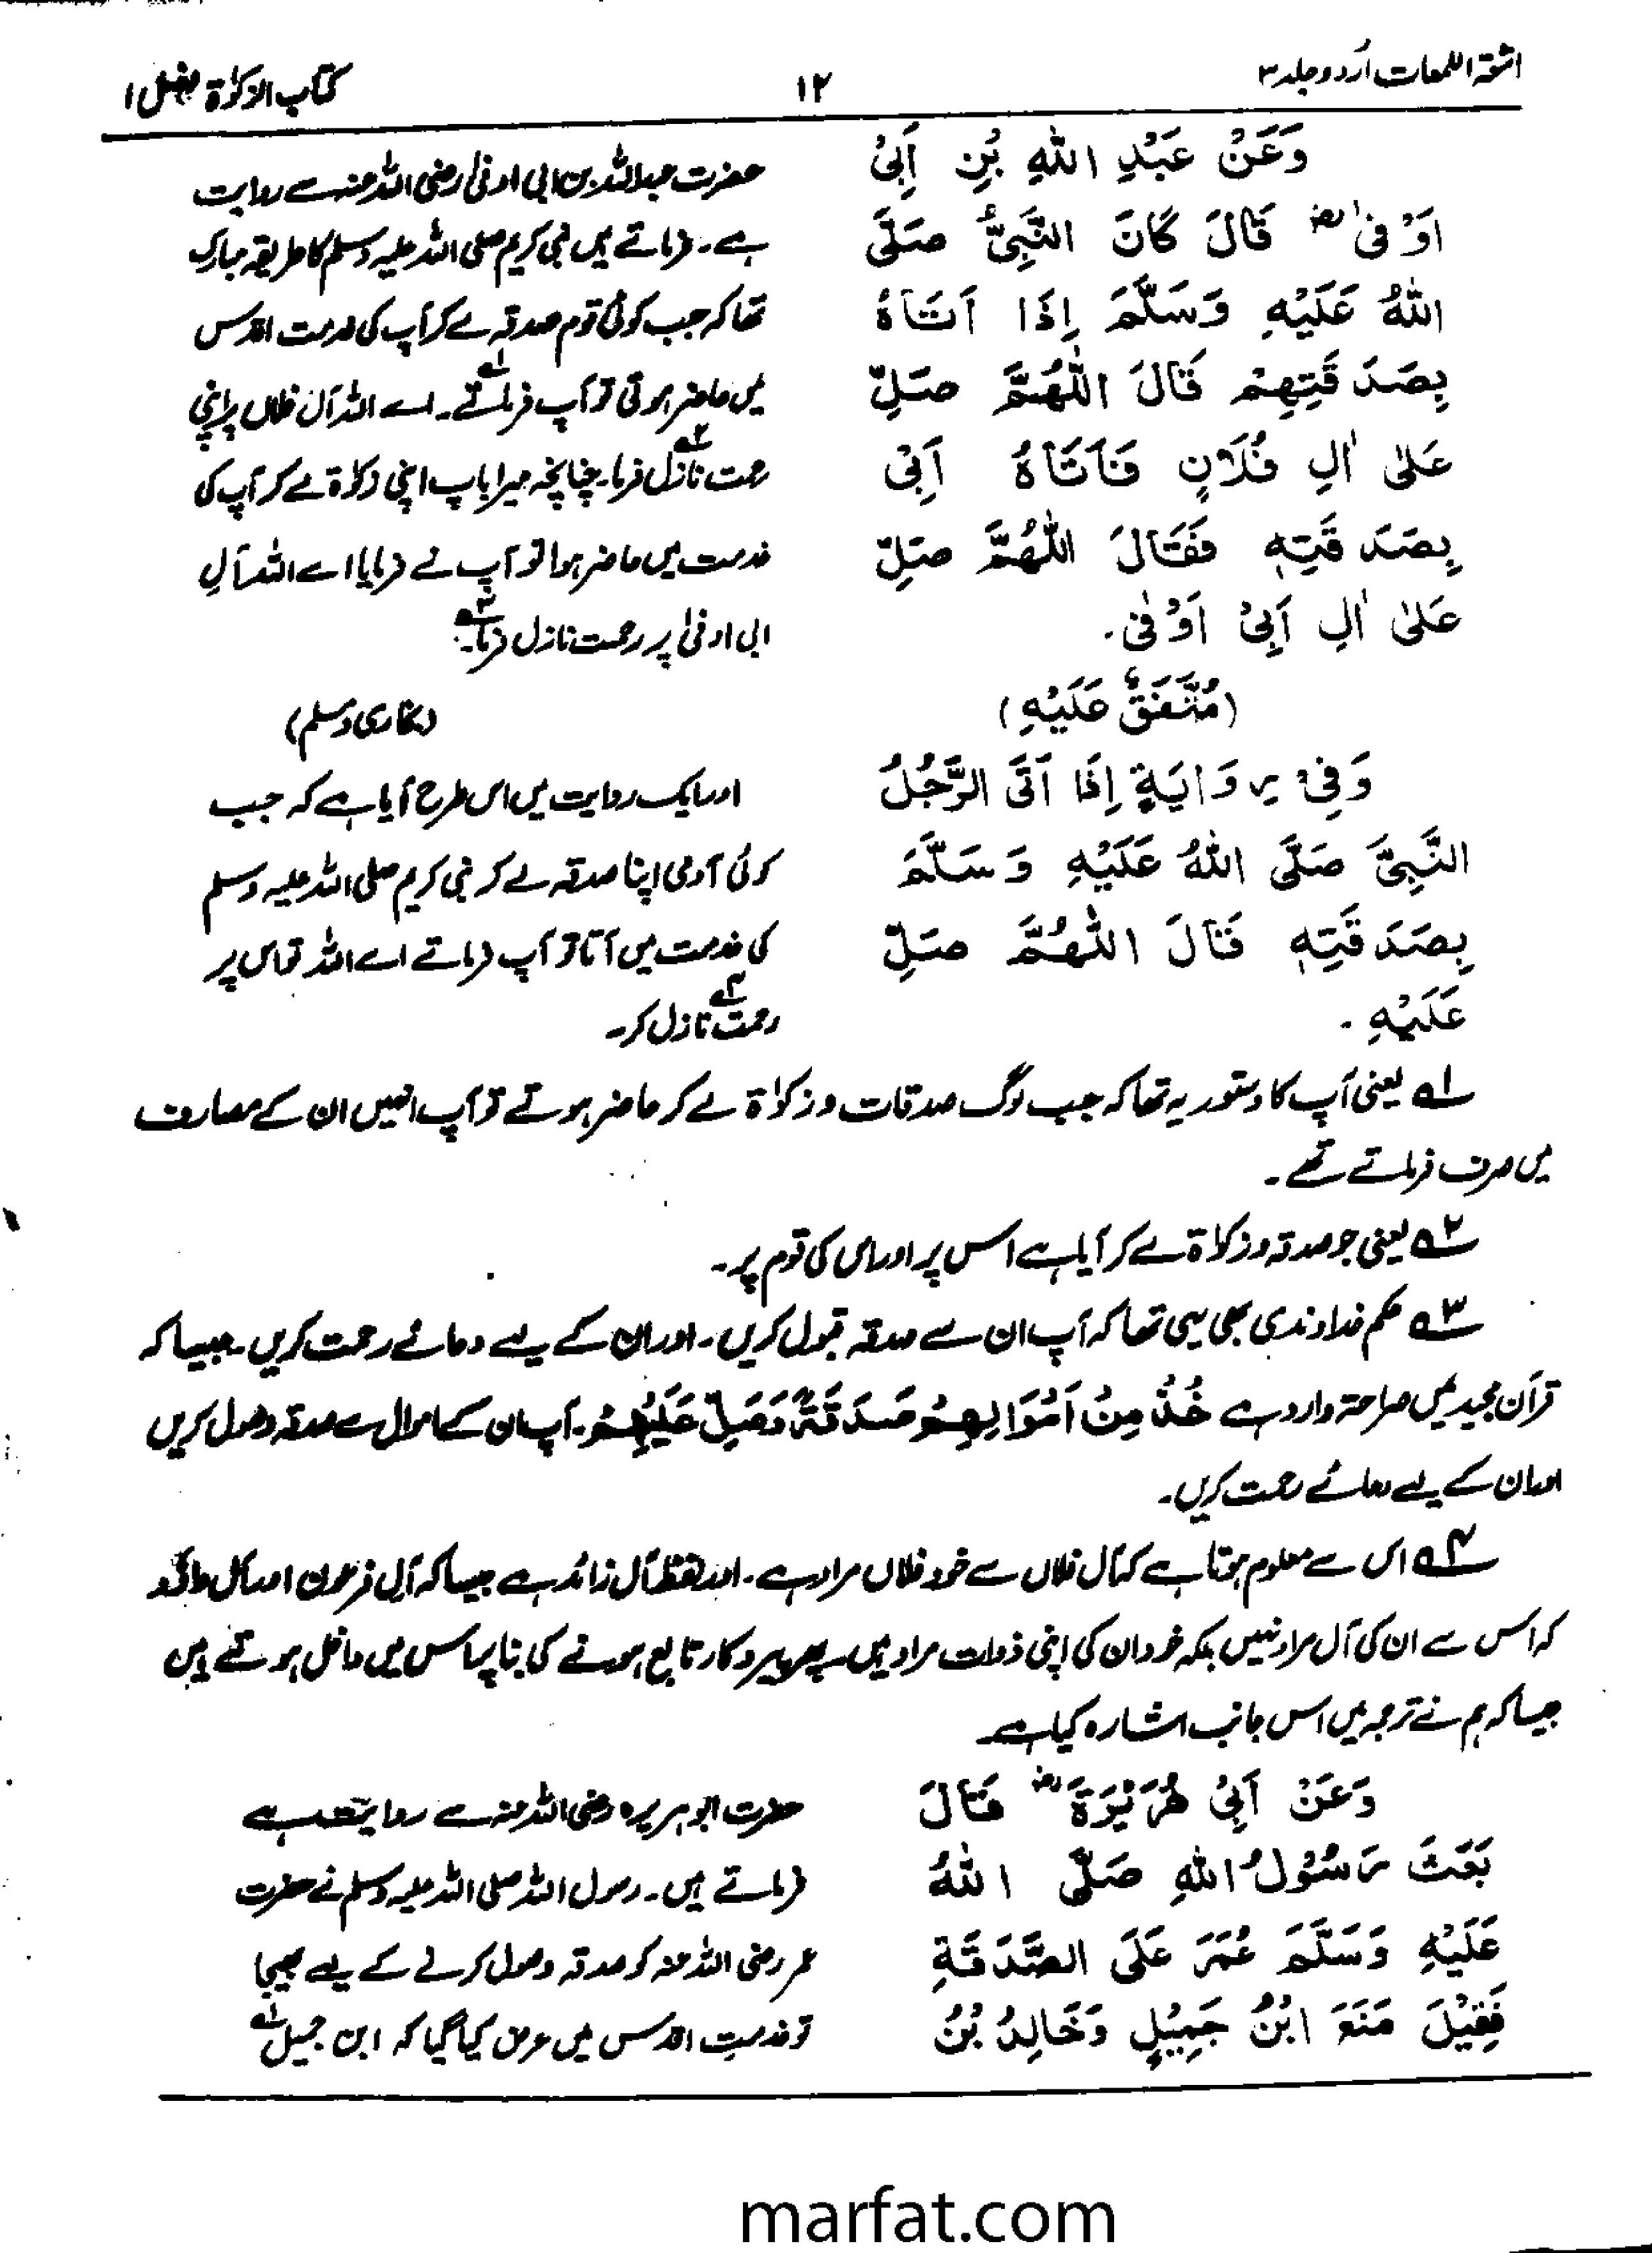 اشعۃ اللمعات اُردو جلد ۳
۱۲
کتاب الزکوٰۃ فصل ۱
وَعَنْ عَبْدِ اللهِ بْنِ اَبِیْ
اَوْفٰی رض قَالَ کَانَ النَّبِیُّ صَلَّی
اللهُ عَلَیْهِ وَسَلَّمَ اِذَا اَتَاهُ
بِصَدَقَتِهِمْ قَالَ اللّٰهُمَّ صَلِّ
عَلٰی اٰلِ فُلَانٍ فَاَتَاهُ اَبِیْ
بِصَدَقَتِهٖ فَقَالَ اللّٰهُمَّ صَلِّ
عَلٰی اٰلِ اَبِیْ اَوْفٰی۔
(مُتَّفَقٌ عَلَیْهِ)
وَفِیْ رِوَایَةٍ اِذَا اَتَی الرَّجُلُ
النَّبِیَّ صَلَّی اللهُ عَلَیْهِ وَسَلَّمَ
بِصَدَقَتِهٖ قَالَ اللّٰهُمَّ صَلِّ
عَلَیْهِ ۔
حضرت عبداللہ بن ابی اوفیٰ رضی اللہ عنہ سے روایت
ہے۔ فرماتے ہیں نبی کریم صلی اللہ علیہ وسلم کا طریقہ مبارک
تھا کہ جب کوئی قوم صدقہ لے کر آپ کی خدمت اقدس
میں حاضر ہوتی تو آپ فرماتے۱؎۔ اے اللہ آل فلاں پر اپنی
رحمت نازل۲؎ فرما۔ چنانچہ میرا باپ اپنی زکوٰۃ لے کر آپ کی
خدمت میں حاضر ہوا تو آپ نے فرمایا اے اللہ آلِ
ابی اوفیٰ پر رحمت نازل فرما۳؎۔
(بخاری و مسلم)
اور ایک روایت میں اس طرح آیا ہے کہ جب
کوئی آدمی اپنا صدقہ لے کر نبی کریم صلی اللہ علیہ وسلم
کی خدمت میں آتا تو آپ فرماتے اے اللہ تو اس پر
رحمت۴؎ نازل کر۔
۱؎ یعنی آپ کا دستور یہ تھا کہ جب لوگ صدقات و زکوٰۃ لے کر حاضر ہوتے تو آپ انہیں ان کے مصارف
میں صرف فرماتے تھے۔
۲؎ یعنی جو صدقہ و زکوٰۃ لے کر آیا ہے اس پر اور اس کی قوم پر۔
۳؎ حکم خداوندی بھی یہی تھا کہ آپ ان سے صدقہ قبول کریں۔ اور ان کے لیے دعائے رحمت کریں۔ جیسا کہ
قرآن مجید میں صراحۃً وارد ہے خُذْ مِنْ اَمْوَالِهِمْ صَدَقَةً وَصَلِّ عَلَیْهِمْ۔ آپ ان کے اموال سے صدقہ وصول کریں
اور ان کے لیے دعائے رحمت کریں۔
۴؎ اس سے معلوم ہوتا ہے کہ آل فلاں سے خود فلاں مراد ہے۔ اور لفظ آل زائد ہے جیسا کہ آلِ فرعون اور آل داؤد
کہ اس سے ان کی آل مراد نہیں بلکہ خود ان کی اپنی ذوات مراد ہیں۔ پھر پیروکار تابع ہونے کی بنا پر اس میں داخل ہوتے ہیں
جیسا کہ ہم نے ترجمہ میں اس جانب اشارہ کیا ہے۔
وَعَنْ اَبِیْ هُرَیْرَةَ رض قَالَ
بَعَثَ رَسُوْلُ اللهِ صَلَّی اللهُ
عَلَیْهِ وَسَلَّمَ عُمَرَ عَلَی الصَّدَقَةِ
فَقِیْلَ مَنَعَ ابْنُ جَمِیْلٍ وَخَالِدُ بْنُ
حضرت ابوہریرہ رضی اللہ عنہ سے روایت ہے
فرماتے ہیں۔ رسول اللہ صلی اللہ علیہ وسلم نے حضرت
عمر رضی اللہ عنہ کو صدقہ وصول کرنے کے لیے بھیجا
تو خدمتِ اقدس میں عرض کیا گیا کہ ابن جمیل۱؎
marfat.com